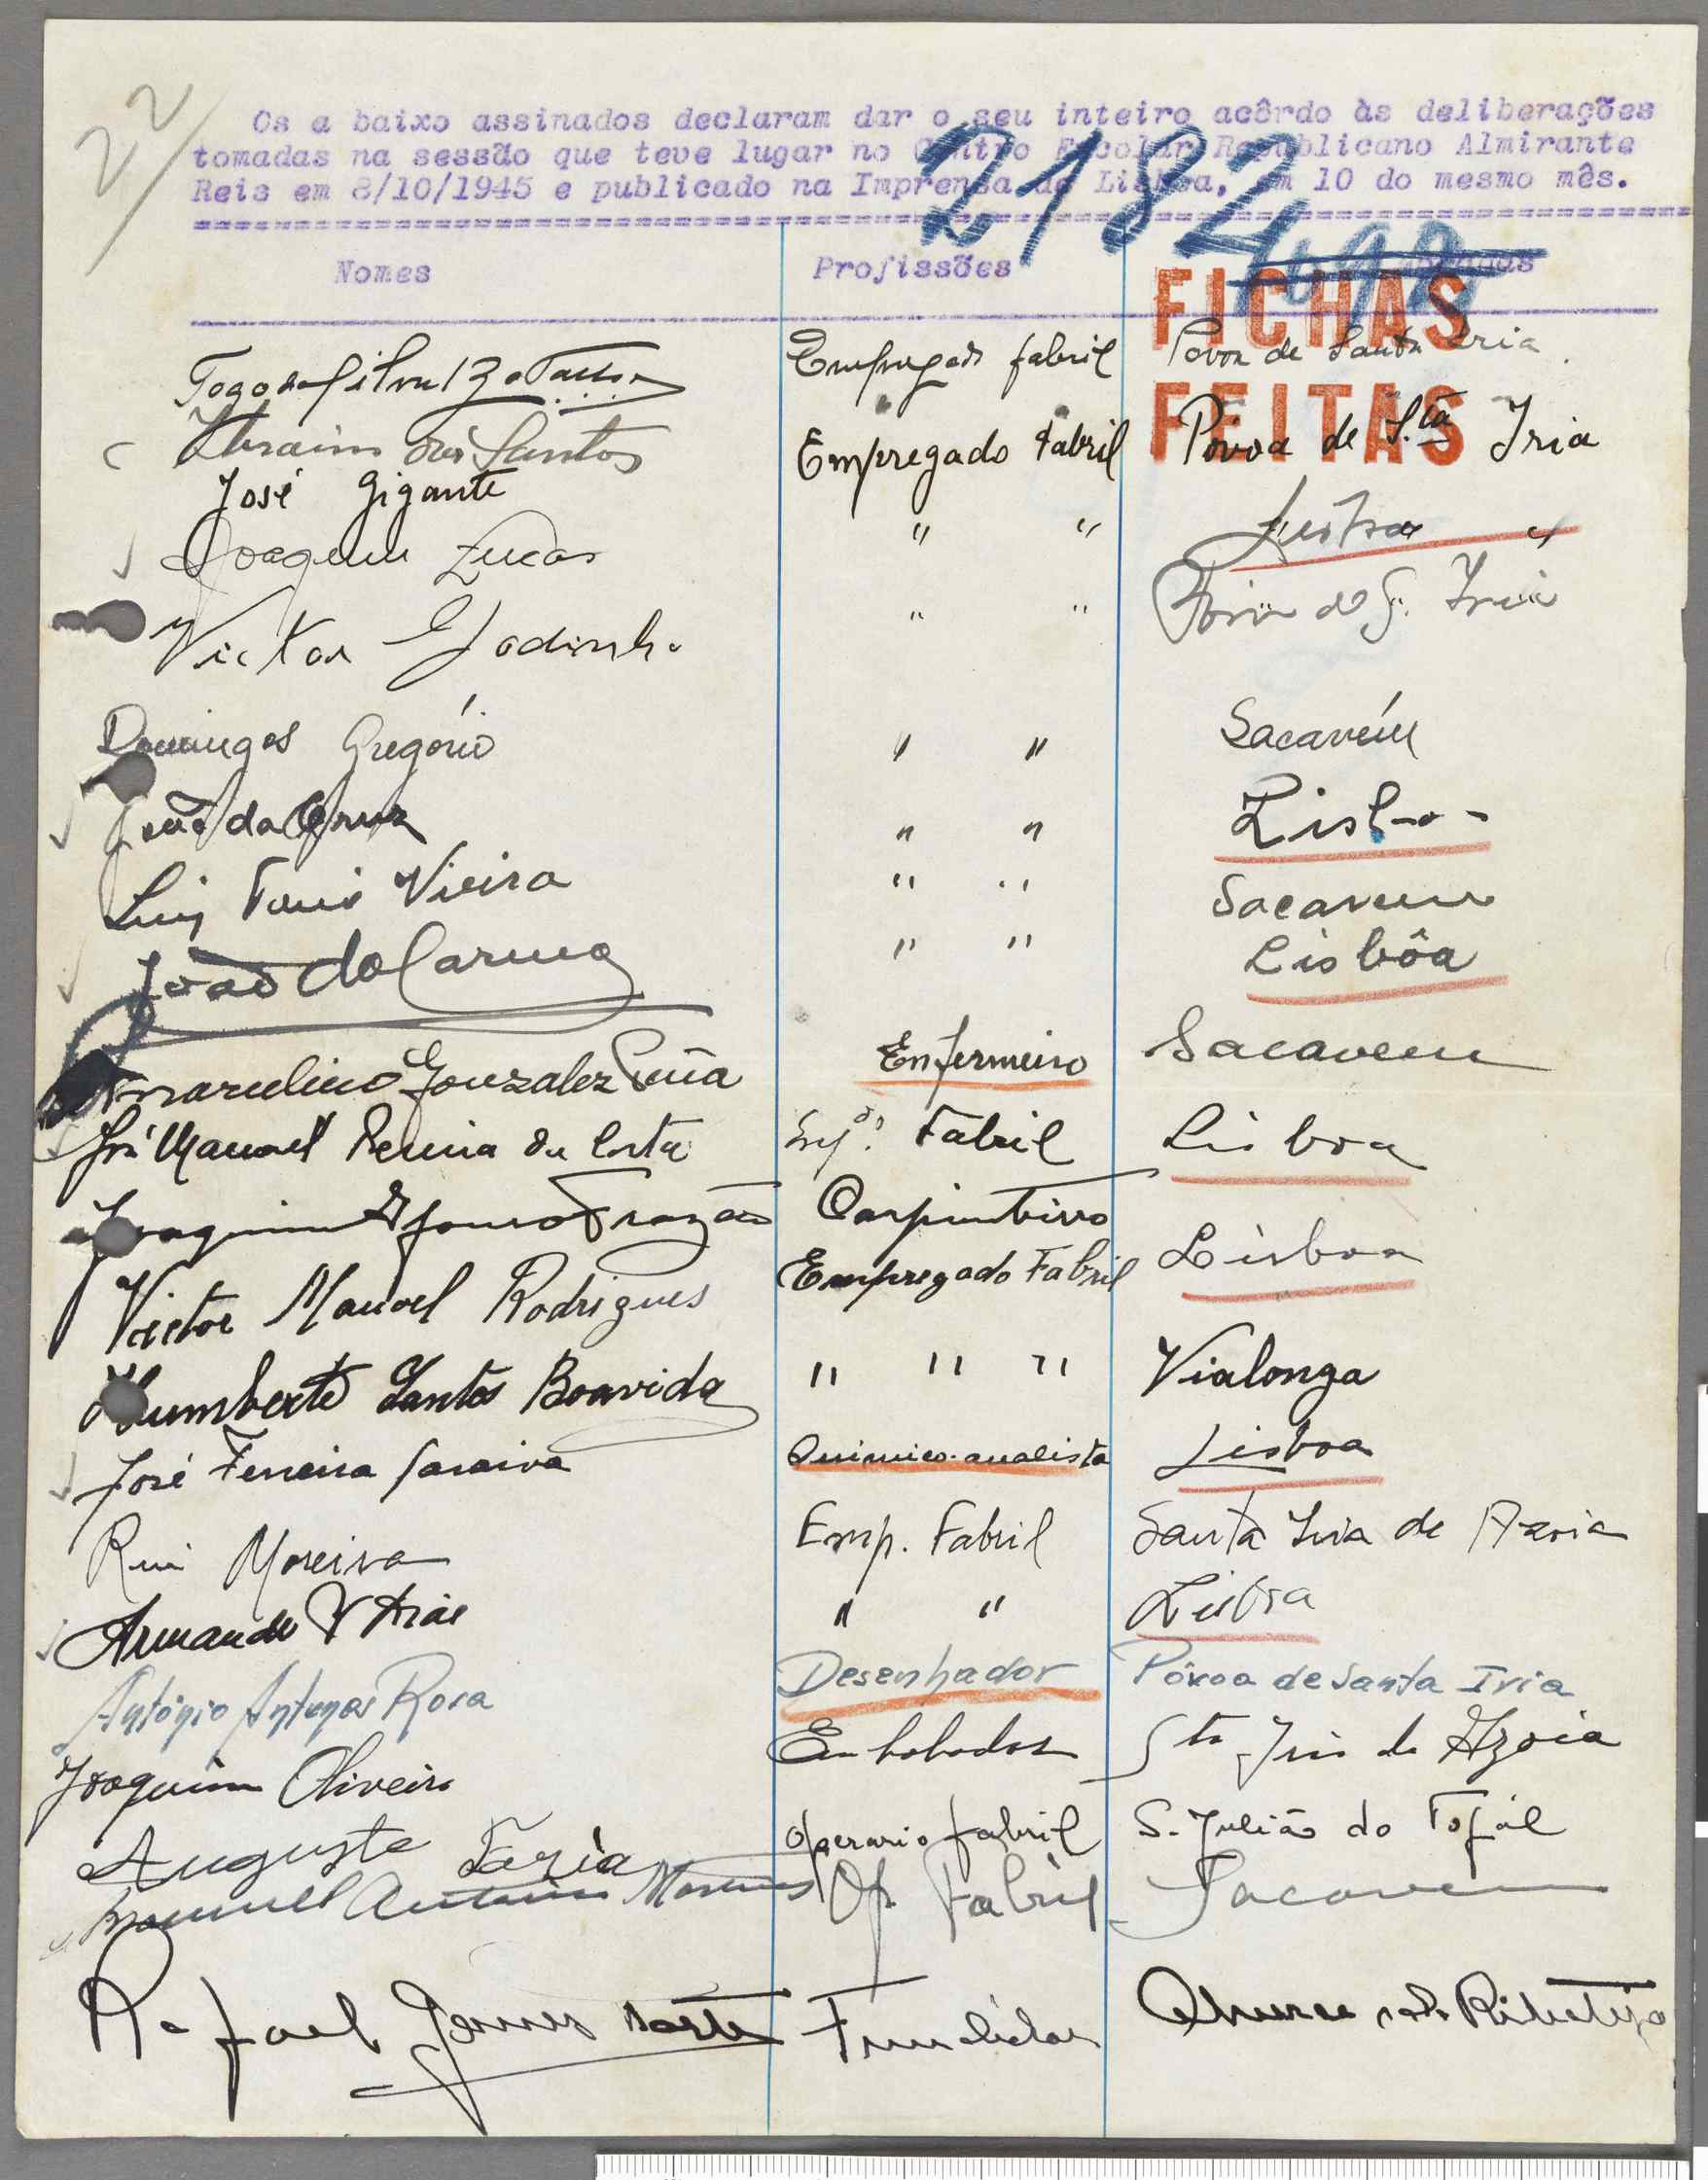 22
Os a baixo assinados declaram dar o seu inteiro acôrdo às deliberações
tomadas na sessão que teve lugar no Centro Escolar Republicano Almirante
Reis em 8/10/1945 e publicado na Imprensa de Lisboa, em 10 do mesmo mês.
2182
Nomes Profissões Moradas
FICHAS
FEITAS
Empregado fabril Povoa de Santa Iria
dos Santos Empregado Fabril Póvoa de S.ta Iria
José Gigante " "
Joaquim Lucas " "
Victor Godinho
Domingos Gregório " " Sacavém
João da Cruz " " Lisboa
Luiz Vieira " " Sacavem
João do Carmo " " Lisbôa
Marcelino Gonzalez Peña Enfermeiro Sacavem
José Manuel Pereira da Costa Fabril Lisboa
Joaquim Afonso Frazão Carpinteiro Lisboa
Victor Manoel Rodrigues Empregado Fabril
Humberto Santos Boavida " " " Vialonga
José Ferreira Saraiva Quimico-analista Lisboa
Rui Moreira Emp. Fabril Santa Iria de Azoia
Armando V Dias " " Lisboa
António Antunes Rosa Desenhador Póvoa de Santa Iria
Joaquim Oliveira Sta Iria de Azoia
Augusto Faria Operario fabril S. Julião do Tojal
Manuel Antonio Martins Op. Fabril Sacavem
Rafael Gomes Fundidor do Ribatejo